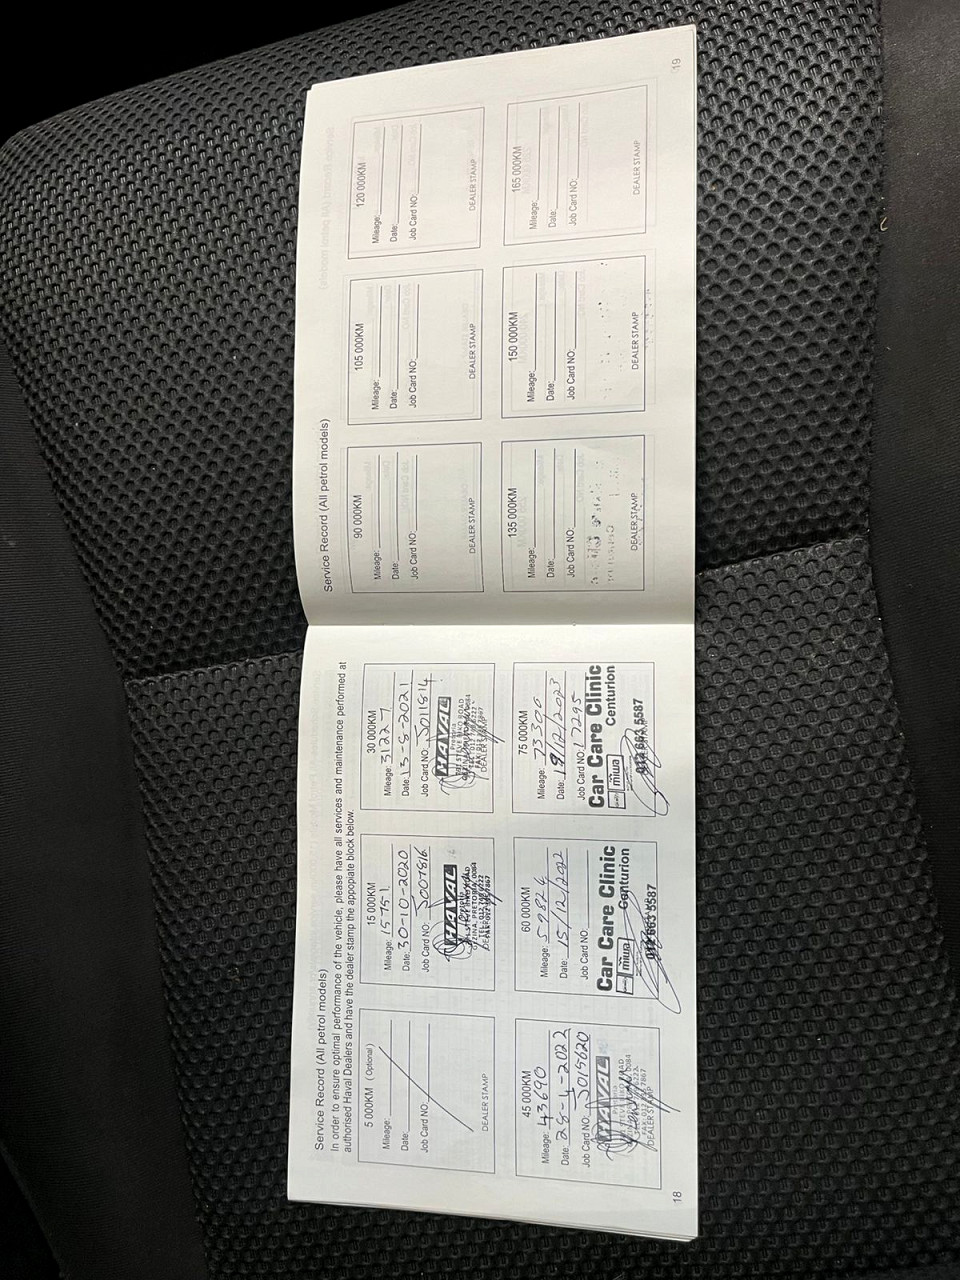 Service Record (All petrol models)
In order to ensure optimal performance of the vehicle, please have all services and maintenance performed at
authorised Haval Dealers and have the dealer stamp the appopiate block below.
5 000KM (Optional)
Mileage:
Date:
Job Card NO:
DEALER STAMP
15 000KM
Mileage: 15751
Date: 30-10-2020
Job Card NO: J007816
HAVAL
30 000KM
Mileage: 31227
Date: 13-8-2021
Job Card NO: J011814
HAVAL
DEALER STAMP
45 000KM
Mileage: 43690
Date: 28-1-2022
Job Card NO: J015620
HAVAL
DEALER STAMP
60 000KM
Mileage: 59826
Date: 15/12/2022
Job Card NO:
Car Care Clinic
miwa Centurion
012 663 5587
75 000KM
Mileage: 73306
Date: 19/12/2023
Job Card NO: 17295
Car Care Clinic
miwa Centurion
012 663 5587
18
Service Record (All petrol models)
90 000KM
Mileage:
Date:
Job Card NO:
DEALER STAMP
105 000KM
Mileage:
Date:
Job Card NO:
DEALER STAMP
120 000KM
Mileage:
Date:
Job Card NO:
DEALER STAMP
135 000KM
Mileage:
Date:
Job Card NO:
DEALER STAMP
150 000KM
Mileage:
Date:
Job Card NO:
DEALER STAMP
165 000KM
Mileage:
Date:
Job Card NO:
DEALER STAMP
19